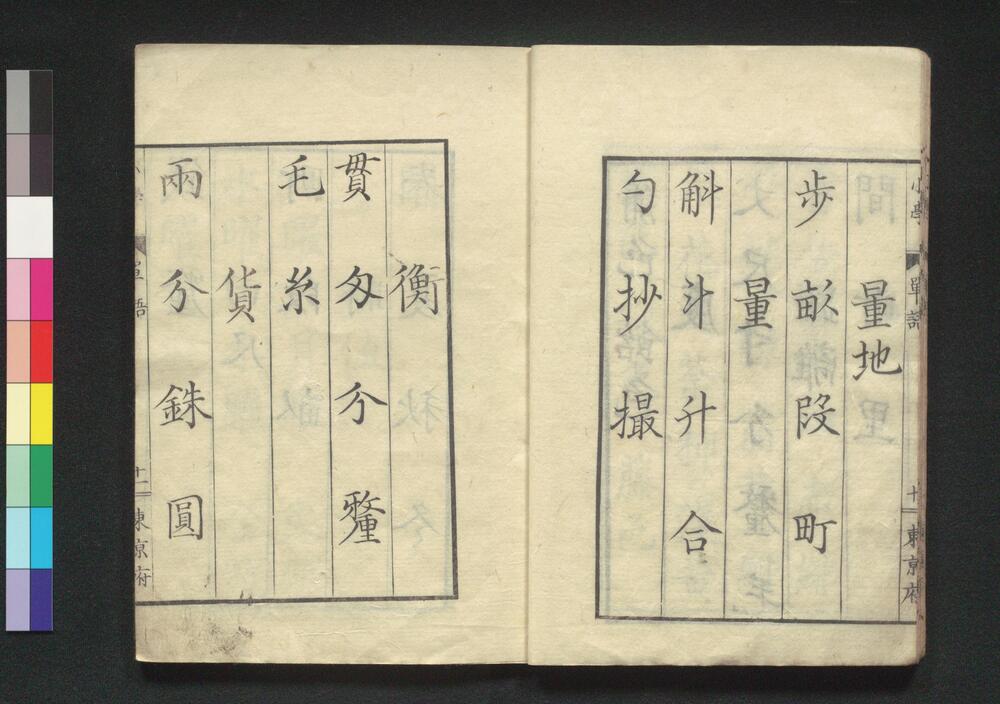 小學 單語 十一 東京府
量地
步 畝 段 町
量
斛 斗 升 合
勺 抄 撮
衡
貫 匁 分 釐
毛 糸
貨
兩 分 銖 圓
單語 十二 東京府